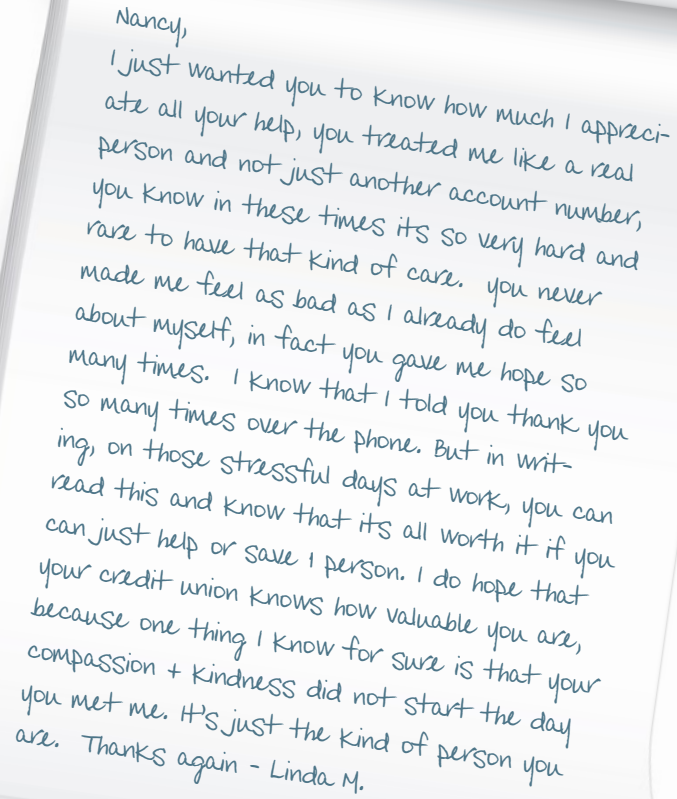 Nancy,
I just wanted you to know how much I appreci-
ate all your help, you treated me like a real
person and not just another account number,
you know in these times its so very hard and
rare to have that kind of care. you never
made me feel as bad as I already do feel
about myself, in fact you gave me hope so
many times. I know that I told you thank you
so many times over the phone. But in writ-
ing, on those stressful days at work, you can
read this and know that its all worth it if you
can just help or save 1 person. I do hope that
your credit union knows how valuable you are,
because one thing I know for sure is that your
compassion + kindness did not start the day
you met me. It's just the kind of person you
are. Thanks again - Linda M.